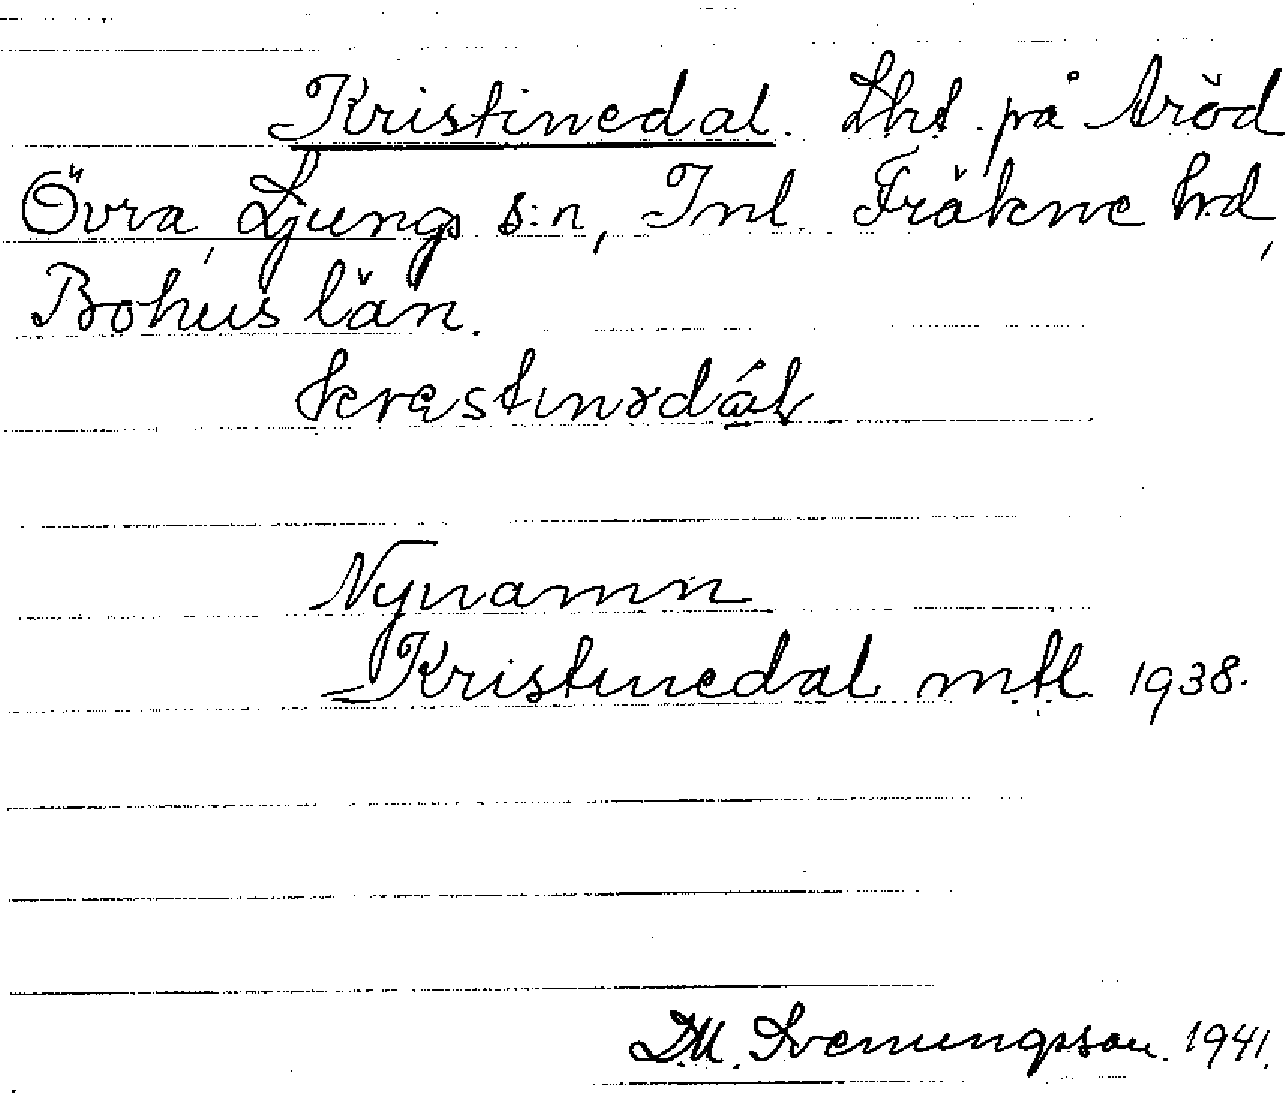 Kristinedal. Lht. på Aröd
Övra, Ljungs s:n, Inl. Fräkne hd,
Bohus län.
krestinədál
Nynamn
Kristinedal mtl 1938.
D.M. Svenungsson. 1941.